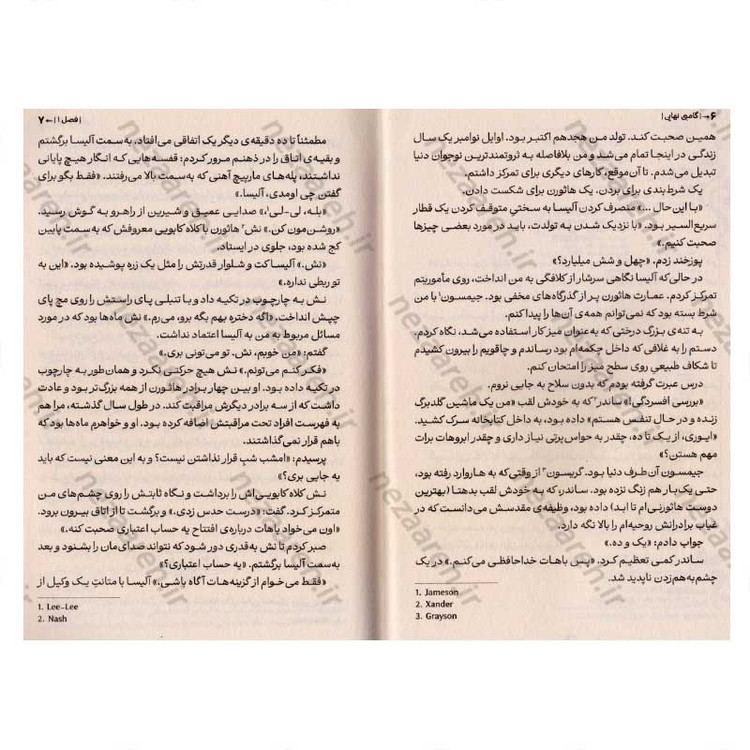 ۶ ← | گامبی نهایی |
همین صحبت کند. تولد من هجدهم اکتبر بود. اوایل نوامبر یک سال
زندگی در اینجا تمام می‌شد و من بلافاصله به ثروتمندترین نوجوان دنیا
تبدیل می‌شدم. تا آن‌موقع، کارهای دیگری برای تمرکز داشتم.
یک شرط‌بندی برای بردن. یک هاثورن برای شکست دادن.
«با این حال ...» منصرف کردن آلیسا به سختیِ متوقف کردن یک قطار
سریع‌السیر بود. «با نزدیک شدن به تولدت، باید در مورد بعضی چیزها
صحبت کنیم.»
پوزخند زدم. «چهل و شش میلیارد؟»
در حالی‌که آلیسا نگاهی سرشار از کلافگی به من انداخت، روی مأموریتم
تمرکز کردم. عمارت هاثورن پر از گذرگاه‌های مخفی بود. جیمسون۱ با من
شرط بسته بود که نمی‌توانم همه‌ی آن‌ها را پیدا کنم.
به تنه‌ی بزرگ درختی که به‌عنوان میز کار استفاده می‌شد، نگاه کردم.
دستم را به غلافی که داخل چکمه‌ام بود رساندم و چاقویم را بیرون کشیدم
تا شکاف طبیعیِ روی سطح میز را امتحان کنم.
درس عبرت گرفته بودم که بدون سلاح به جایی نروم.
«بررسی افسردگی!» ساندر۲ که به خودش لقب «من یک ماشین گلدبرگ
زنده و در حال تنفس هستم» داده بود، به داخل کتابخانه سرک کشید.
«ایوری، از یک تا ده، چقدر به حواس‌پرتی نیاز داری و چقدر ابروهات برات
مهم هستن؟»
جیمسون آن‌طرف دنیا بود. گریسون۳ از وقتی‌که به هاروارد رفته بود،
حتی یک‌بار هم زنگ نزده بود. ساندر، که به خودش لقب بدهتا (بهترین
دوست هاثورنی‌ام تا ابد) داده بود، وظیفه‌ی مقدسش می‌دانست که در
غیاب برادرانش روحیه‌ام را بالا نگه دارد.
جواب دادم: «یک و ده.»
ساندر کمی تعظیم کرد. «پس باهات خداحافظی می‌کنم.» در یک
چشم‌به‌هم‌زدن ناپدید شد.
1. Jameson
2. Xander
3. Grayson
| فصل ۱ | → ۷
مطمئناً تا ده دقیقه‌ی دیگر یک اتفاقی می‌افتاد. به‌سمت آلیسا برگشتم
و بقیه‌ی اتاق را در ذهنم مرور کردم: قفسه‌هایی که انگار هیچ پایانی
نداشتند، پله‌های مارپیچ آهنی که به‌سمت بالا می‌رفتند. «فقط بگو برای
گفتن چی اومدی، آلیسا.»
«بله، لی-لی۱،» صدایی عمیق و شیرین از راهرو به گوش رسید.
«روشن‌مون کن.» نش۲ هاثورن با کلاه کابویی معروفش که به‌سمت پایین
کج شده بود، جلوی در ایستاد.
«نش.» آلیسا کت و شلوار قدرتش را مثل یک زره پوشیده بود. «این به
تو ربطی نداره.»
نش به چارچوب در تکیه داد و با تنبلی پای راستش را روی مچ پای
چپش انداخت. «اگه دختره بهم بگه برو، می‌رم.» نش ماه‌ها بود که در مورد
مسائل مربوط به من به آلیسا اعتماد نداشت.
گفتم: «من خوبم، نش. تو می‌تونی بری.»
«فکر کنم می‌تونم.» نش هیچ حرکتی نکرد و همان‌طور به چارچوب
در تکیه داده بود. او بین چهار برادر هاثورن از همه بزرگ‌تر بود و عادت
داشت که از سه برادر دیگرش مراقبت کند. در طول سال گذشته، مرا هم
به فهرست افراد تحت مراقبتش اضافه کرده بود. او و خواهرم ماه‌ها بود که
باهم قرار نمی‌گذاشتند.
پرسیدم: «امشب شبِ قرار نذاشتن نیست؟ و به این معنی نیست که باید
یه جایی بری؟»
نش کلاه کابویی‌اش را برداشت و نگاه ثابتش را روی چشم‌های من
متمرکز کرد. گفت: «درست حدس زدی.» و برگشت تا از اتاق بیرون برود.
«اون می‌خواد باهات درباره‌ی افتتاح یه حساب اعتباری صحبت کنه.»
صبر کردم تا نش به‌قدری دور شود که نتواند صدای‌مان را بشنود و بعد
به‌سمت آلیسا برگشتم. «یه حساب اعتباری؟»
«فقط می‌خوام از گزینه‌هات آگاه باشی.» آلیسا با متانتِ یک وکیل از
1. Lee-Lee
2. Nash
nezaareh.ir